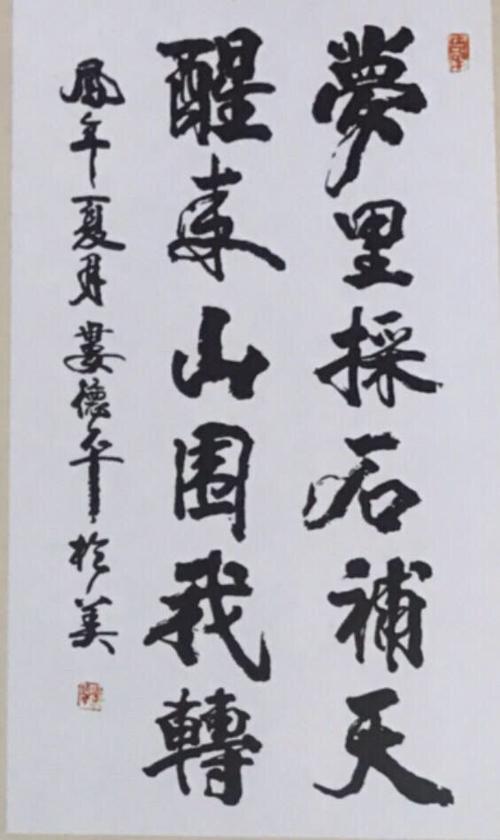 夢里採石補天
醒来山围我轉
鳳年夏月婁德平於美